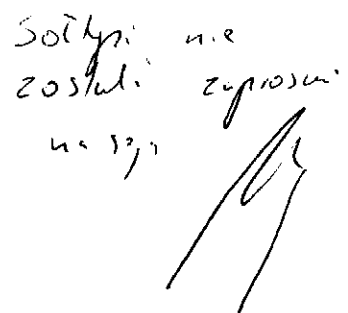 Sołtysi nie
zostali zaproszeni
na sesję